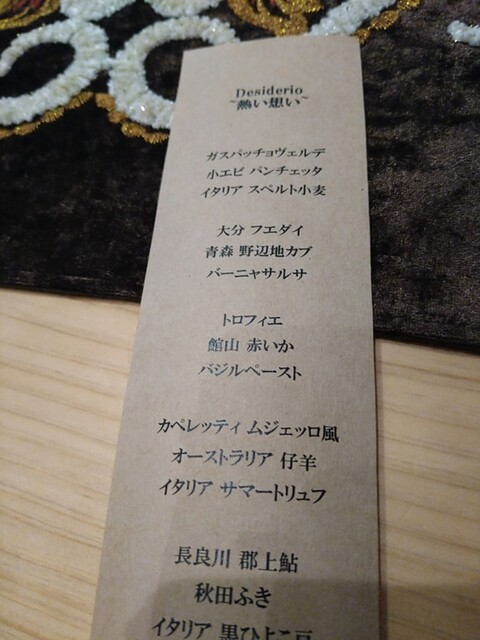 Desiderio
~熱い想い~
ガスパッチョヴェルデ
小エビ パンチェッタ
イタリア スペルト小麦
大分 フエダイ
青森 野辺地カブ
バーニャサルサ
トロフィエ
館山 赤いか
バジルペースト
カペレッティ ムジェッロ風
オーストラリア 仔羊
イタリア サマートリュフ
長良川 郡上鮎
秋田ふき
イタリア 黒ひよこ豆